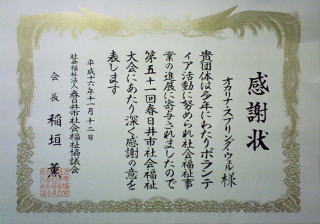 感謝状
オカリナスプリングウル様
貴団体は多年にわたりボランテ
ィア活動に努められ社会福祉事
業の進展に寄与されましたので
第五十一回春日井市社会福祉
大会にあたり深く感謝の意を
表します
平成十六年十一月十二日
社会福祉法人春日井市社会福祉協議会
会長 稲垣 薫